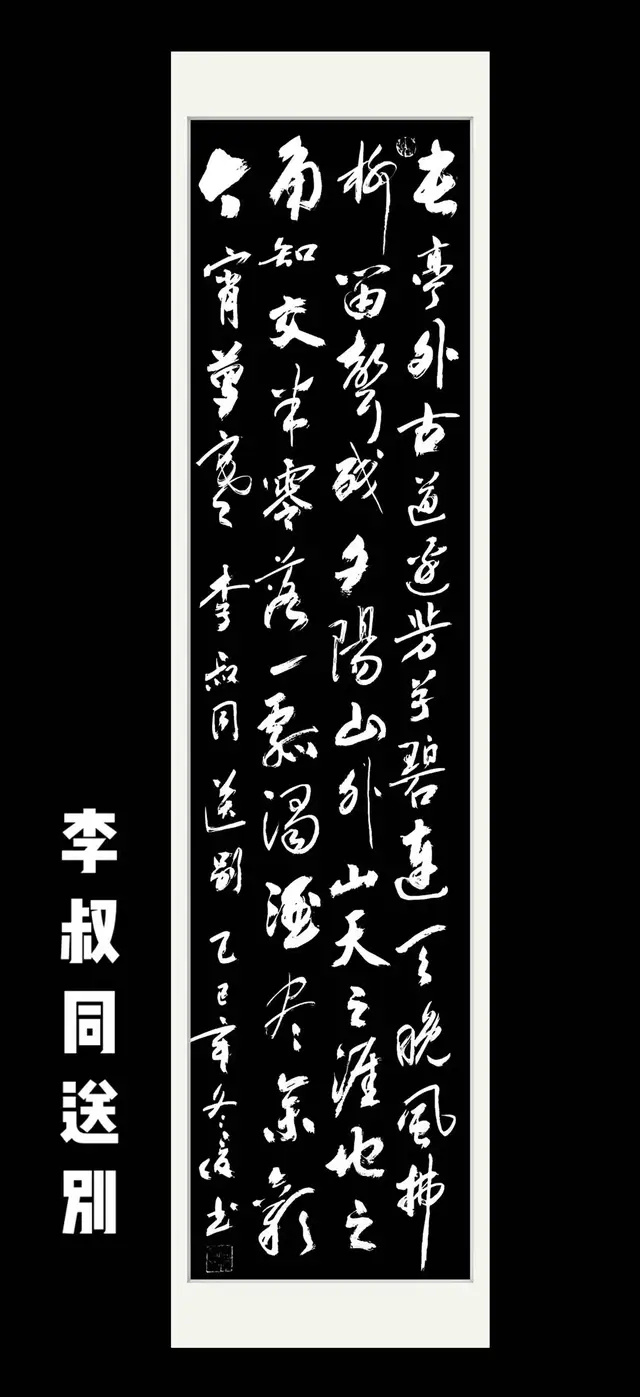 長亭外古道邊芳草碧連天晚風拂
柳笛聲殘夕陽山外山天之涯地之
角知交半零落一瓢濁酒尽余歡
今宵夢寒 李叔同送别 乙巳年冬书
李叔同送别